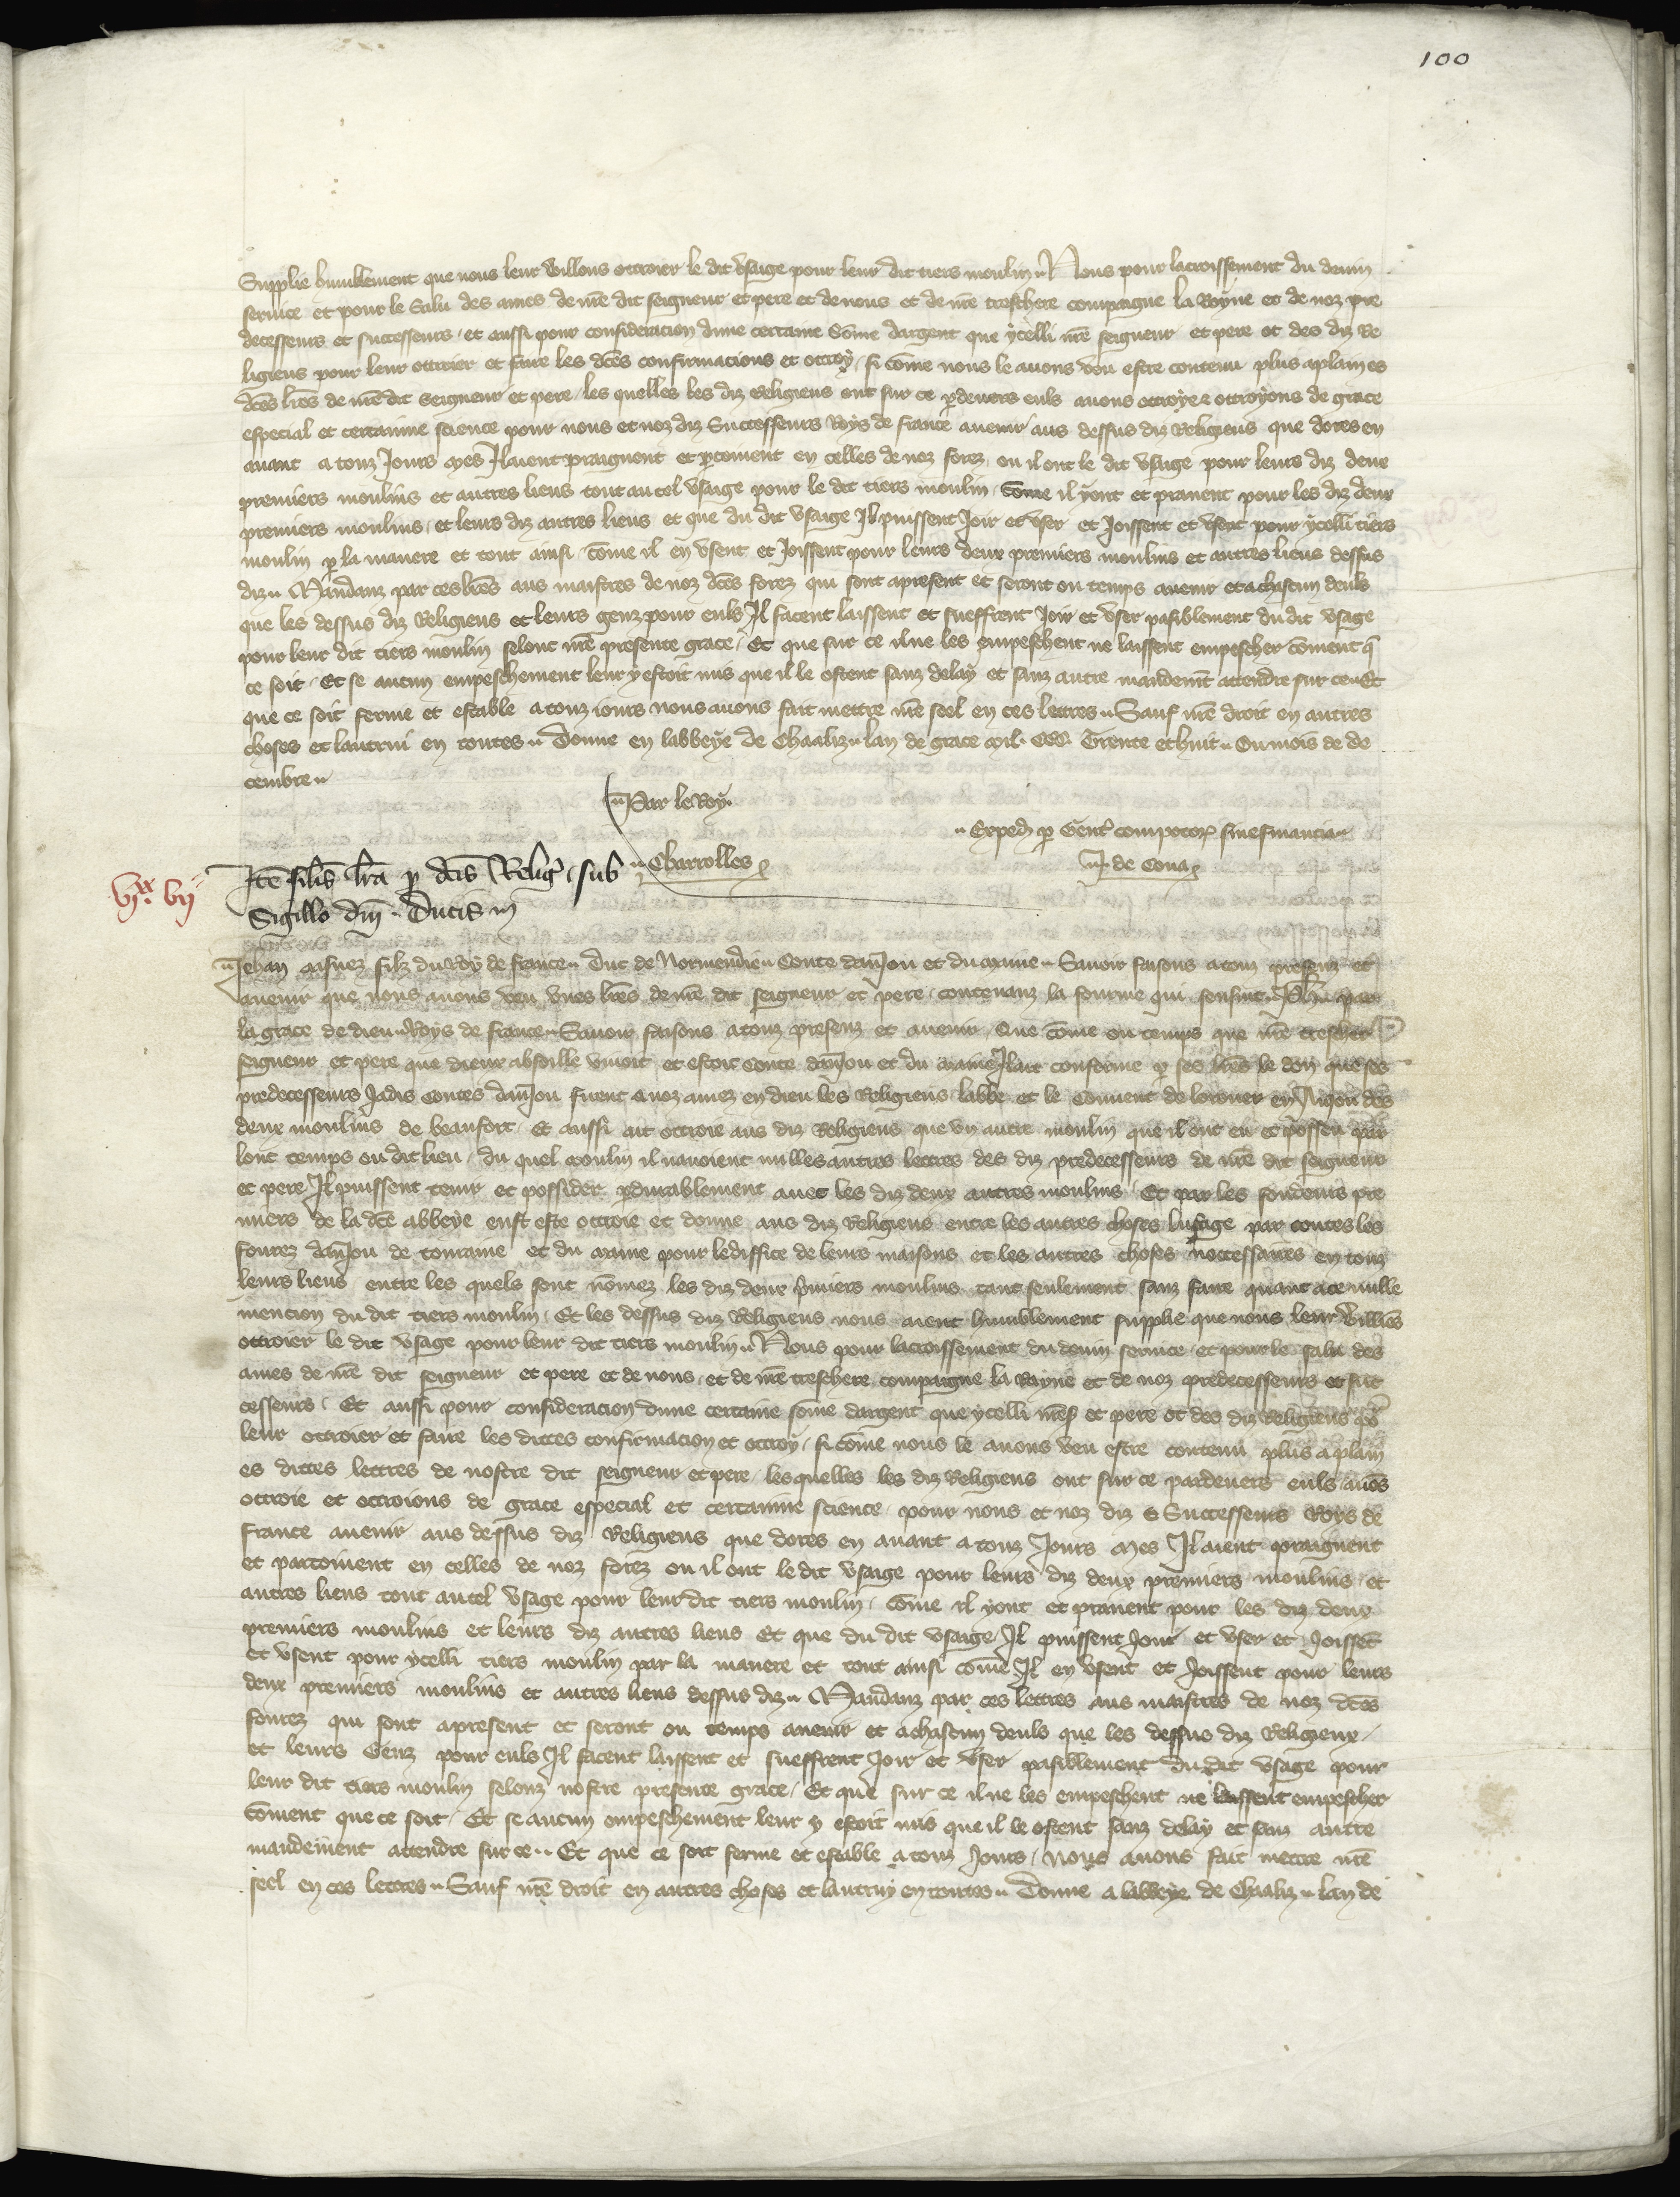 100
Supplie humblement que nous leur vuillons ottroier le dit vsaige pour leur dit tiers moulin. Nous pour lacroissement du deuin
seruice et pour le Salu des ames de nr̄e dit seigneur et pere et de nous et de nr̄e treschere compaigne la Royne et de noz pre
decesseurs et successeurs, et aussi pour consideracion dune certaine Som̄e dargent que ycelli nr̄e seigneur et pere ot des diz Re
ligieus pour leur ottroier et faire les dc̄es confirmacions et ottroy, si com̄e nous le auons veu estre contenu plus aplain es
dc̄es lr̄es de nr̄e dit Seigneur et pere, les quelles les diz Religieus ont sur ce ꝑdeuers euls auons ottroye et ottroyons de grace
especial et certainne science pour nous et noz diz Successeurs Roys de france auenir aus dessus diz Religieus que dores en
auant a touz Jours mes Il aient praignent et ꝑcoiuent en celles de noz forez, ou il ont le dit vsaige pour leurs diz deux
premiers moulins et autres lieus tout autel vsaige pour le dit tiers moulin, Com̄e il y ont et prainent pour les diz deux
premiers moulins, et leurs diz autres lieus et que du dit vsaige Il puissent Joir et vser et Joissent et vsent pour ycelli tiers
moulin ꝑ la maniere et tout ainsi, com̄e il en vsent et Joissent pour leurs deux premiers moulins et autres lieus dessus
diz. Mandanz par ces lr̄es aus maistres de noz dc̄es forez qui sont apresent et seront ou temps auenir et a chascun deuls
que les dessus diz Religieus et leurs genz pour euls Il facent laissent et sueffrent Joir et vser pasiblement du dit vsage
pour leur dit tiers moulin selonc nr̄e presente grace, Et que sur ce il ne les empeschent ne laissent empescher com̄ent q̄
ce soit, Et se aucun empeschement leur y estoit mis que il le ostent sanz delay et sanz autre mandemt attendre sur ce. Et
que ce soit ferme et estable a touz iours nous auons fait mettre nr̄e seel en ces lettres. Sauf nr̄e droit en autres
choses et lautrui en toutes. Donne en labbeye de Chaaliz. lan de grace mil. CCC. Trente et huit. Ou mois de de
cembre.
Par le Roy.
Exped ꝑ Gent compotor sine financia
Charrolles
J. de Cona
Itē sil̄is lr̄a ꝑ dc̄is Relig, sub
Sigillo dn̄i Ducis
vjxx. vij
Jehan ainsnez filz du Roy de france. Duc de Normendie. Conte danJou et du maine. Sauoir faisons a touz presenz et
auenir que nous auons veu vnes lr̄es de nr̄e dit seigneur et pere, contenanz la fourme qui sensuit. Ph. par
la grace de dieu. Roys de france. Sauoir faisons a touz presenz et auenir, Que com̄e ou temps que nr̄e trescher
seigneur et pere que dieux absoille viuoit et estoit Conte danJou et du maine Il ait conferme ꝑ ses lr̄es le don que ses
predecesseurs Jadis Contes danJou firent a noz amez en dieu les Religieus labbe et le Conuent de lorouer en Aniou des
deux moulins de beaufort, Et aussi ait ottroie aus diz Religieus que vn autre moulin que il ont eu et possen par
lonc temps ou dit lieu, du quel moulin il nauoient nulles autres lettres des diz predecesseurs de nr̄e dit seigneur
et pere Il puissent tenir et possider ꝑdurablement auec les diz deux autres moulins, Et par les fondeurs pre
miers de la dc̄e abbeye eust este ottroie et donne aus diz Religieus entre les autres choses lusage par toutes les
fourez danJou de touraine et du maine pour lediffice de leurs maisons et les autres choses neccessaires en touz
leurs lieus entre les quels sont nom̄ez les diz deux pmiers moulins tant seulement sanz faire quant a ce nulle
mencion du dit tiers moulin, Et les dessus diz Religieus nous aient humblement supplie que nous leur vuillōs
ottroier le dit vsage pour leur dit tiers moulin. Nous pour lacroissement du deuin seruice, et pour le salu des
ames de nr̄e dit seigneur et pere et de nous, et de nr̄e treschere compaigne la Royne et de noz predecesseurs et suc
cesseurs, Et aussi pour consideracion dune certaine som̄e dargent que ycelli nr̄e sr̄ et pere ot des diz Religieus pō
leur ottroier et faire les dittes confirmacion et ottroy, si com̄e nous le auons veu estre contenu plus aplain
es dittes lettres de nostre dit seigneur et pere, les quelles les diz Religieus ont sur ce pardeuers euls auōs
ottroie et ottroions de grace especial et certainne science, pour nous et noz diz Successeurs Roys de
france auenir aus dessus diz Religieus que dores en auant a touz Jours mes Il aient praignent
et parcoiuent en celles de noz forez ou il ont le dit vsaige pour leurs diz deux premiers moulins, et
autres lieus tout autel vsage pour leur dit tiers moulin, Com̄e il y ont et prainent pour les diz deux
premiers moulins et leurs diz autres lieus Et que du dit vsaige Il puissent Joir et vser et Joissēt
et vsent pour ycelli tiers moulin par la maniere et tout ainsi com̄e Il en vsent et Joissent pour leurs
deux premiers moulins et autres lieus dessus diz. Mandanz par ces lettres aus maistres de noz dc̄es
fourez qui sont apresent et seront ou temps auenir et a chascun deuls que les dessus diz Religieux,
et leurs Genz pour euls Il facent laissent et sueffrent Joir et vser pasiblement du dit vsage pour
leur dit tiers moulin selonz nostre presente grace, Et que sur ce il ne les empeschent ne laissent empescher
com̄ent que ce soit, Et se aucun empeschement leur y estoit mis que il le ostent sanz delay et sanz autre
mandement attendre sur ce. Et que ce soit ferme et estable a touz Jours, Nous auons fait mettre nr̄e
seel en ces lettres. Sauf nr̄e droit en autres choses et lautruy en toutes. Donne a labbeye de Chaaliz. lan de